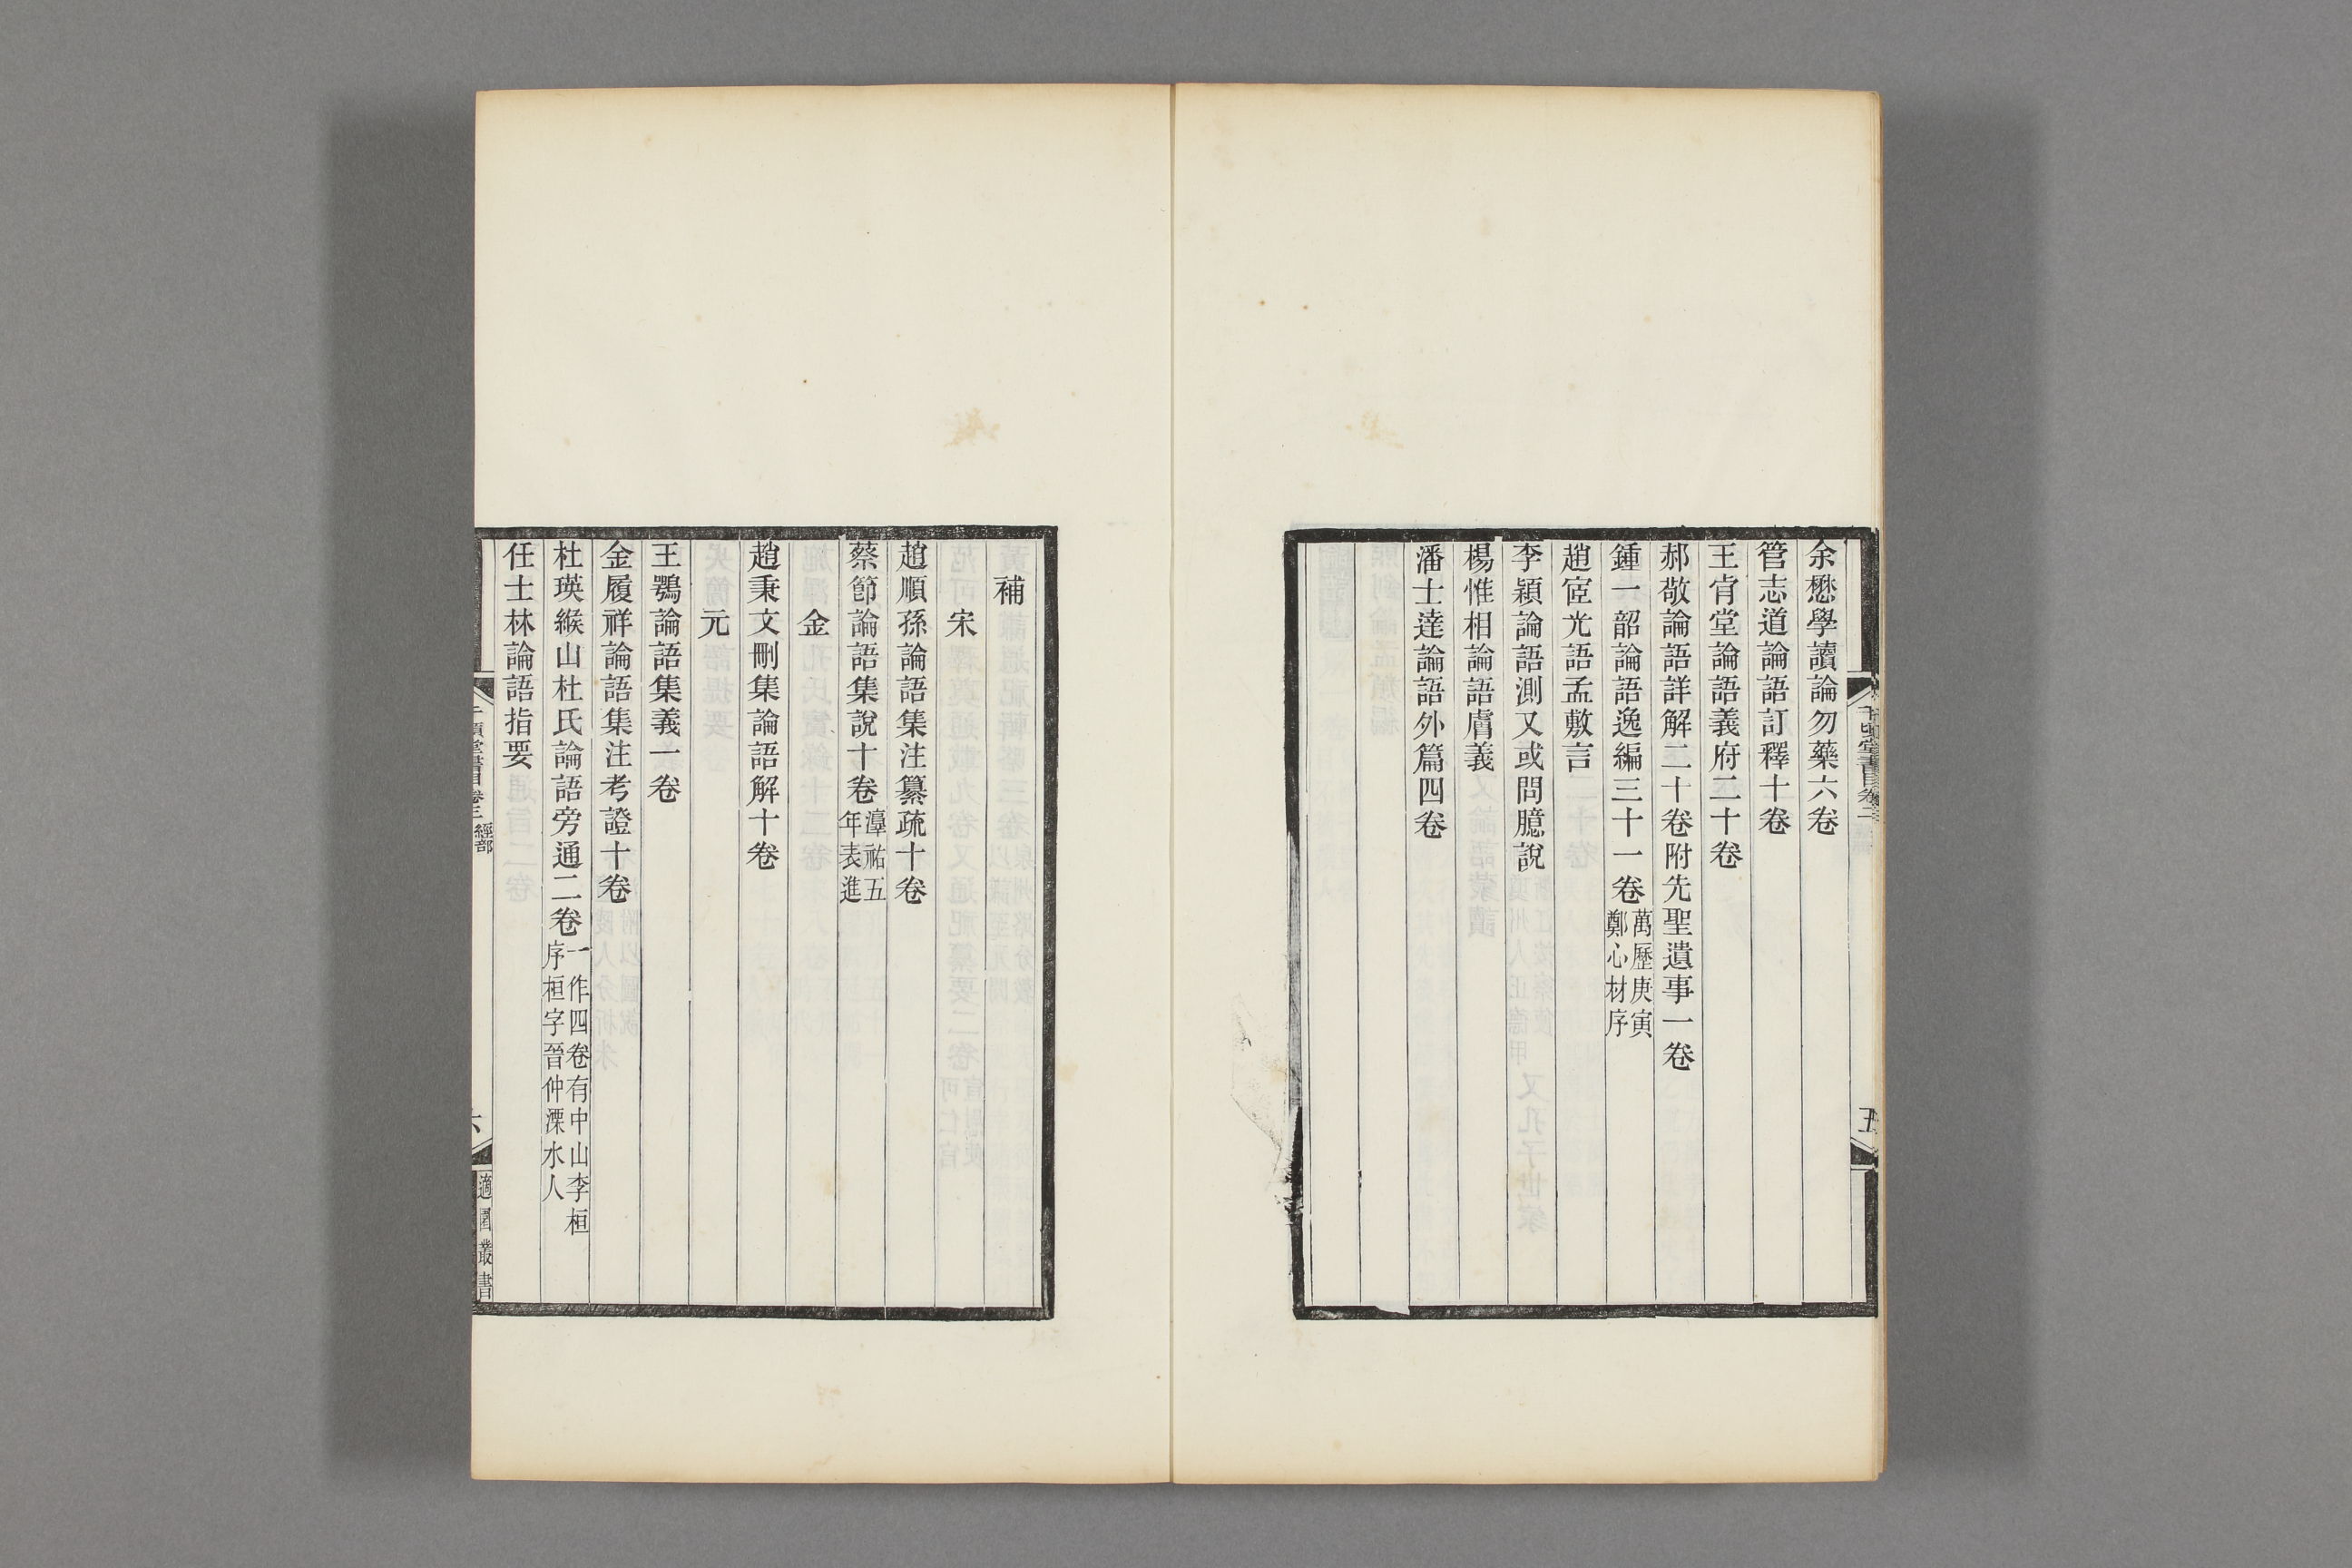 余懋學讀論勿藥六卷
管志道論語訂釋十卷
王肯堂論語義府二十卷
郝敬論語詳解二十卷附先聖遺事一卷
鍾一韶論語逸編三十一卷萬歷庚寅
鄭心材序
趙宧光語孟敷言
李穎論語測又或問臆說
楊惟相論語膚義
潘士達論語外篇四卷
千頃堂書目卷三
五
補
宋
趙順孫論語集注纂疏十卷
蔡節論語集說十卷淳祐五
年表進
金
趙秉文刪集論語解十卷
元
王鶚論語集義一卷
金履祥論語集注考證十卷
杜瑛緱山杜氏論語旁通二卷一作四卷有中山李桓
序桓字晉仲溧水人
任士林論語指要
千頃堂書目卷三
經部
六
適園叢書